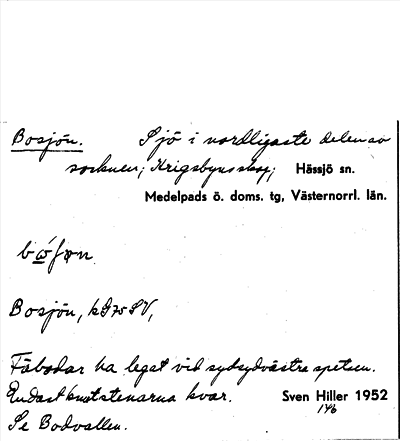 Bosjön. Sjö i nordligaste delen av
socknen; Krigsbyns skog; Hässjö sn.
Medelpads ö. doms. tg, Västernorrl. län.
Bosjön, kG75SV,
Fäbodar ha legat vid sydsydvästra spetsen.
Endast knutstenarna kvar. Sven Hiller 1952
146
Se Bodvallen.